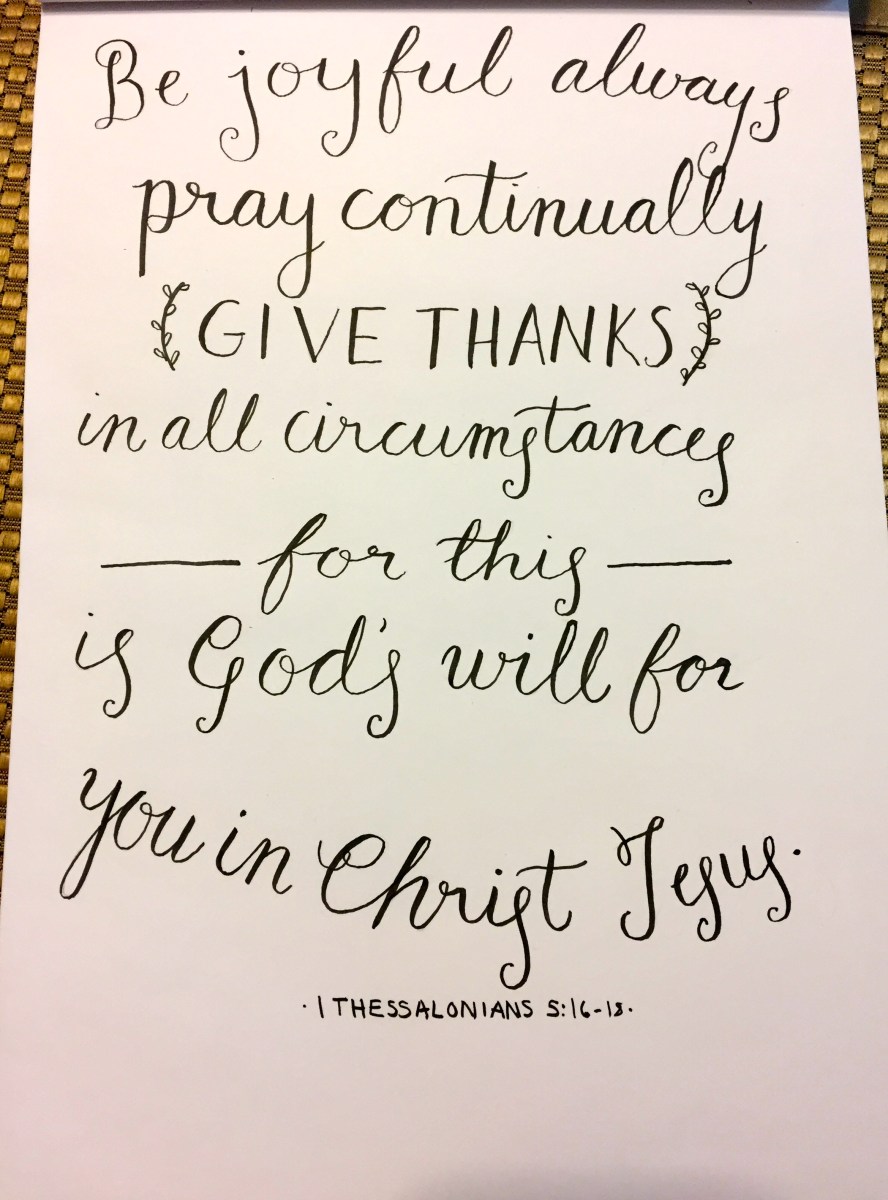 Be joyful always
pray continually
GIVE THANKS
in all circumstances
— for this —
is God's will for
you in Christ Jesus.
· 1 THESSALONIANS 5:16-18 ·